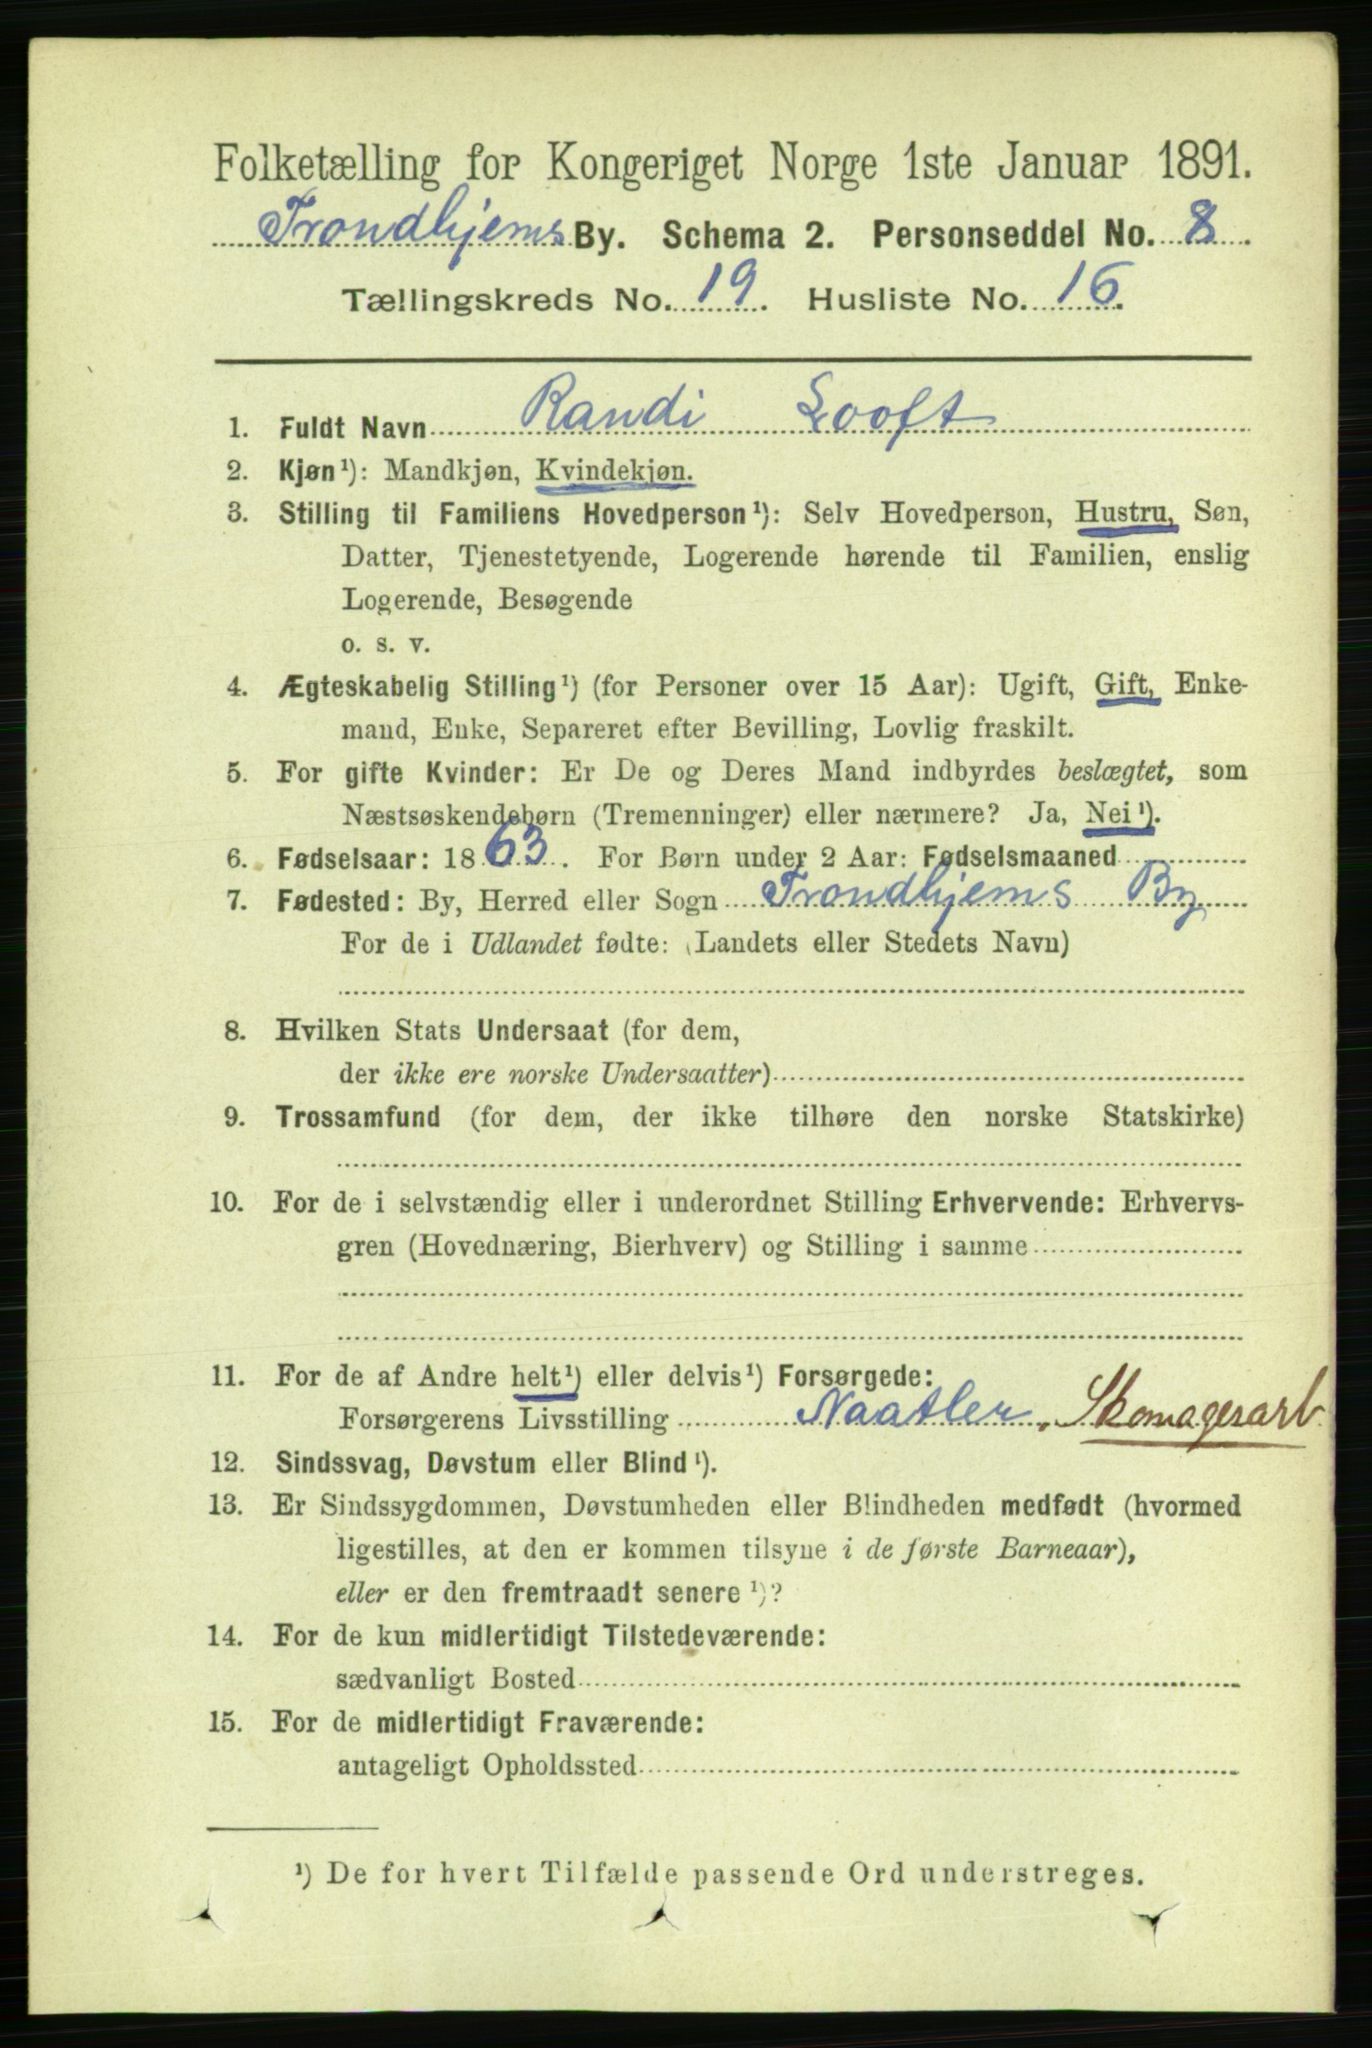 Folketælling for Kongeriget Norge 1ste Januar 1891.
Trondhjems By. Schema 2. Personseddel No. 8.
Tællingskreds No. 19. Husliste No. 16.
1. Fuldt Navn Randi Looft
2. Kjøn¹): Mandkjøn, Kvindekjøn.
3. Stilling til Familiens Hovedperson¹): Selv Hovedperson, Hustru, Søn,
Datter, Tjenestetyende, Logerende hørende til Familien, enslig
Logerende, Besøgende
o. s. v.
4. Ægteskabelig Stilling¹) (for Personer over 15 Aar): Ugift, Gift, Enke-
mand, Enke, Separeret efter Bevilling, Lovlig fraskilt.
5. For gifte Kvinder: Er De og Deres Mand indbyrdes beslægtet, som
Næstsøskendebørn (Tremenninger) eller nærmere? Ja, Nei¹).
6. Fødselsaar: 1863. For Børn under 2 Aar: Fødselsmaaned
7. Fødested: By, Herred eller Sogn Trondhjems By
For de i Udlandet fødte: (Landets eller Stedets Navn)
8. Hvilken Stats Undersaat (for dem,
der ikke ere norske Undersaatter)
9. Trossamfund (for dem, der ikke tilhøre den norske Statskirke)
10. For de i selvstændig eller i underordnet Stilling Erhvervende: Erhvervs-
gren (Hovednæring, Bierhverv) og Stilling i samme
11. For de af Andre helt¹) eller delvis¹) Forsørgede:
Forsørgerens Livsstilling Naatler, Skomagerarb.
12. Sindssvag, Døvstum eller Blind¹).
13. Er Sindssygdommen, Døvstumheden eller Blindheden medfødt (hvormed
ligestilles, at den er kommen tilsyne i de første Barneaar),
eller er den fremtraadt senere¹)?
14. For de kun midlertidigt Tilstedeværende:
sædvanligt Bosted
15. For de midlertidigt Fraværende:
antageligt Opholdssted
¹) De for hvert Tilfælde passende Ord understreges.